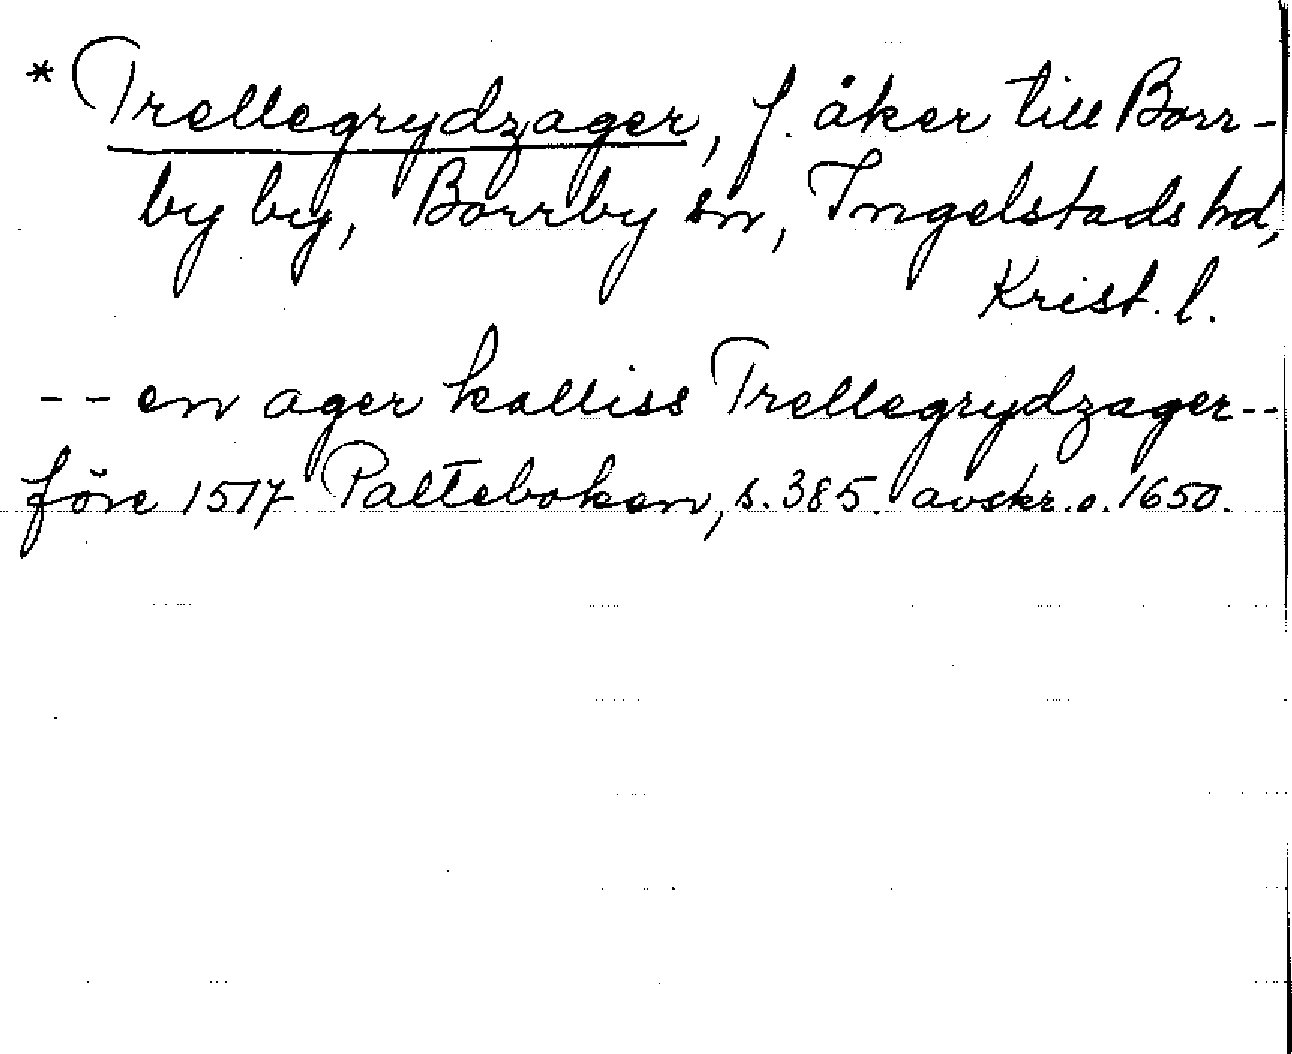 * Trellegrydzager, f. åker till Borr-
by by, Borrby sn, Ingelstads hd,
Krist. l.
-- en ager kalliss Trellegrydzager --
före 1517 Paltebokon, s. 385. avskr. o. 1650.